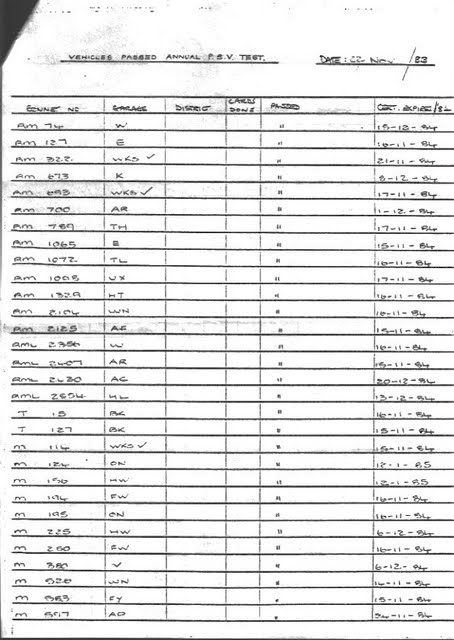 VEHICLES PASSED ANNUAL P.S.V. TEST. DATE: 22 Nov /83
BONNET NO GARAGE DISTRICT CARDS DONE PASSED CERT. EXPIRES/84
RM 74 W " 15-12-84
RM 127 E " 16-11-84
RM 322 WKS ✓ " 21-11-84
RM 673 K " 8-12-84
RM 693 WKS ✓ " 17-11-84
RM 700 AR " 1-12-84
RM 789 TH " 17-11-84
RM 1065 E " 15-11-84
RM 1072 TL " 16-11-84
RM 1098 UX " 17-11-84
RM 1329 HT " 16-11-84
RM 2104 WN " 16-11-84
RM 2125 AF " 15-11-84
RML 2356 W " 16-11-84
RML 2407 AR " 15-11-84
RML 2620 AC " 20-12-84
RML 2654 HL " 13-12-84
T 15 BK " 16-11-84
T 127 BK " 15-11-84
M 114 WKS ✓ " 15-11-84
M 124 ON " 12-1-85
M 156 HW " 12-1-85
M 194 FW " 16-11-84
M 195 ON " 16-11-84
M 225 HW " 6-12-84
M 250 FW " 16-11-84
M 380 V " 6-12-84
M 526 WN " 14-11-84
M 583 FY " 15-11-84
M AD " 24-11-84